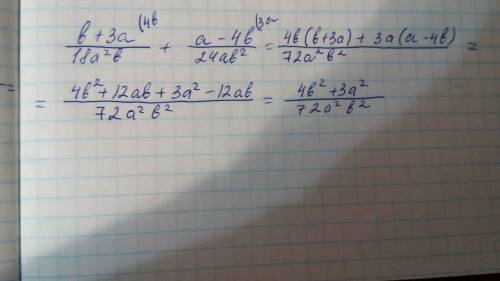 (b + 3a)/(18a²b) (4b + (a - 4b)/(24ab²) (3a = (4b(b+3a) + 3a(a-4b))/(72a²b²) =
= (4b² + 12ab + 3a² - 12ab)/(72a²b²) = (4b² + 3a²)/(72a²b²)